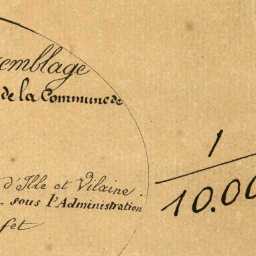 semblage
de la Commune de
1
d'Ille et Vilaine.
sous l'Administration
10.00
fet